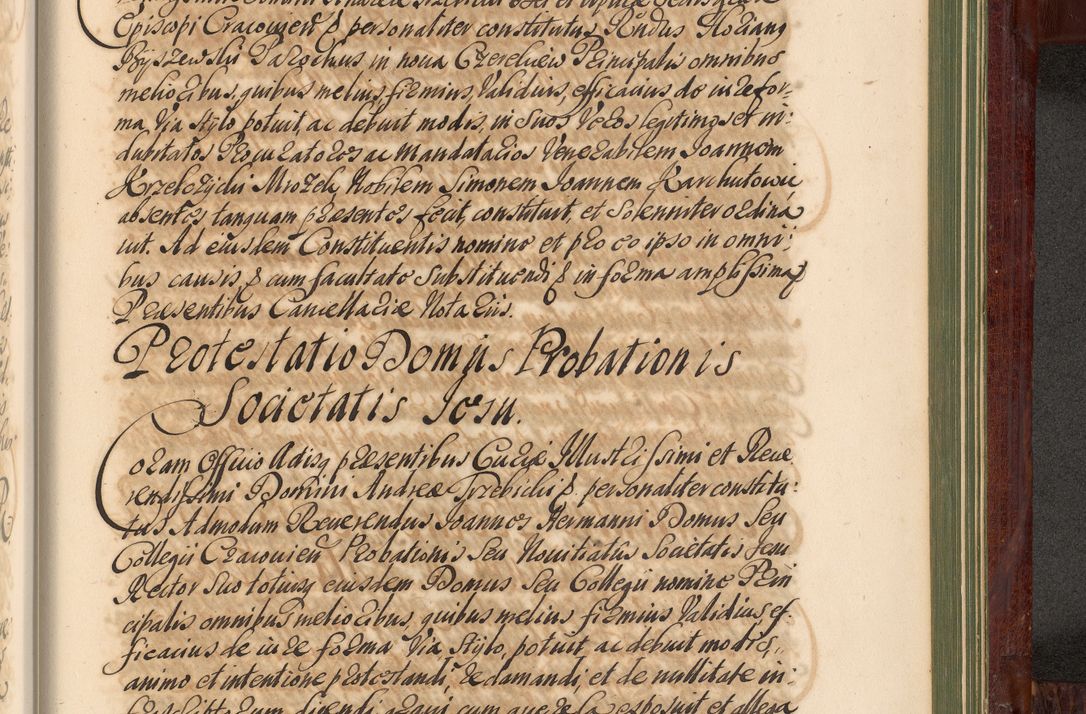 Episcopi Cracovien & personaliter constitutus Rndus Floriang
Ryszewski Parochus in nova Czerekiew Principalis omnibus
melioribus, quibus melius, firmius, Validius, efficacius de iure for-
ma Via stylo potuit, ac debuit modis, in Suos Veros legitimos et in-
dubitatos Procuratores ac Mandatarios Venerabilem Joannem
Krzeloszycki Mrozek Nobilem Simonem Joannem Karchutowic
absentes tanquam praesentes fecit, constituit, et Solenniter ordina
uit. Ad eiusdem Constituentis nomine et pro eo ipso in omni-
bus causis & cum facultate Substituendi & in forma amplissima &
Praesentibus Cancellariae Notariis.
Protestatio Domus Probationis
Societatis Jesu.
Coram Officio Actisq praesentibus Curiae Illustrissimi et Reve
rendissimi Domini Andreae Trzebicki & personaliter constitu-
tus Admodum Reverendus Joannes Hermanni Domus Seu
Collegii Cracovien Probationis Seu Novitiatus Societatis Jesu
Rector Suo totiusq eiusdem Domus Seu Collegii nomine Prin
cipalis omnibus melioribus, quibus melius firmius Validius ef
ficacius de iure forma Via, stylo, potuit ac debuit modis,
animo et intentione protestandi, redamandi, et de nullitate in-
dicendi cum quaerela exposuit et allega